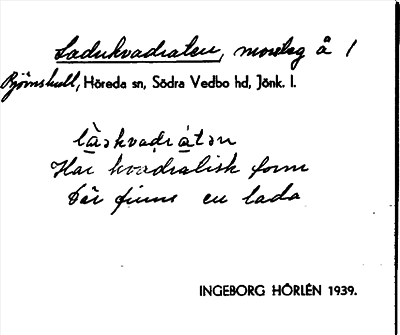 Ladukvadraten, mosteg å 1
Björnskull, Höreda sn, Södra Vedbo hd, Jönk. l.
làəkvadrátən
Har kvadratisk form
Där finns en lada
INGEBORG HÖRLÉN 1939.